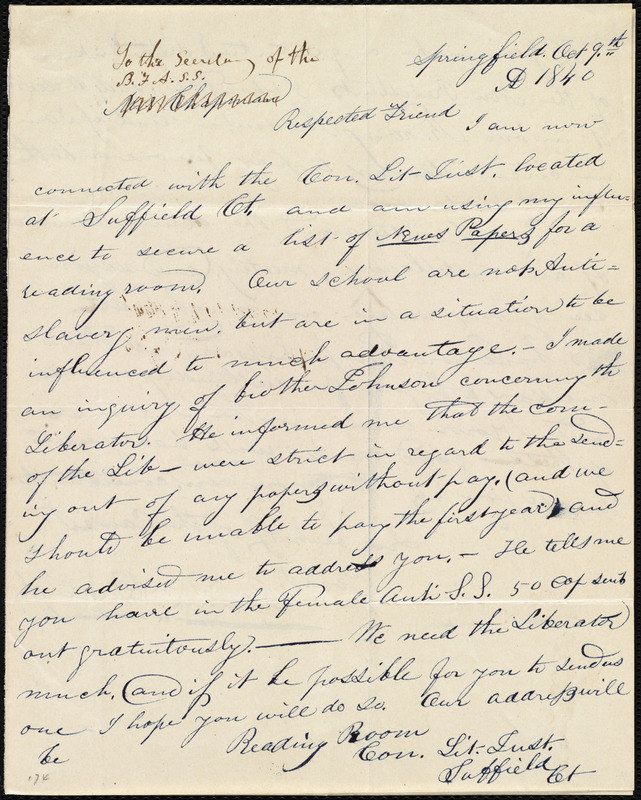 To the Secretary of the
B. F. A. S. S.
Springfield. Oct 9.th
AD 1840
Respected Friend
I am now
connected with the Con. Lit. Inst. located
at Suffield Ct. and am using my influ-
ence to secure a list of News Papers for a
reading room. Our school are not Anti-
slavery men, but are in a situation to be
influenced to much advantage. - I made
an inquiry of brother Johnson concerning th
Liberator. He informed me that the com-
of the Lib- were strict in regard to the send-
ing out of any papers without pay, (and we
should be unable to pay the first year) and
he advised me to address you. - He tells me
you have in the Female Anti S. S. 50 cop sent
out gratuitously. — We need the Liberator
much, (and if it be possible for you to send us
one I hope you will do so. Our address will
be Reading Room
Con. Lit. Inst.
Suffield Ct
174